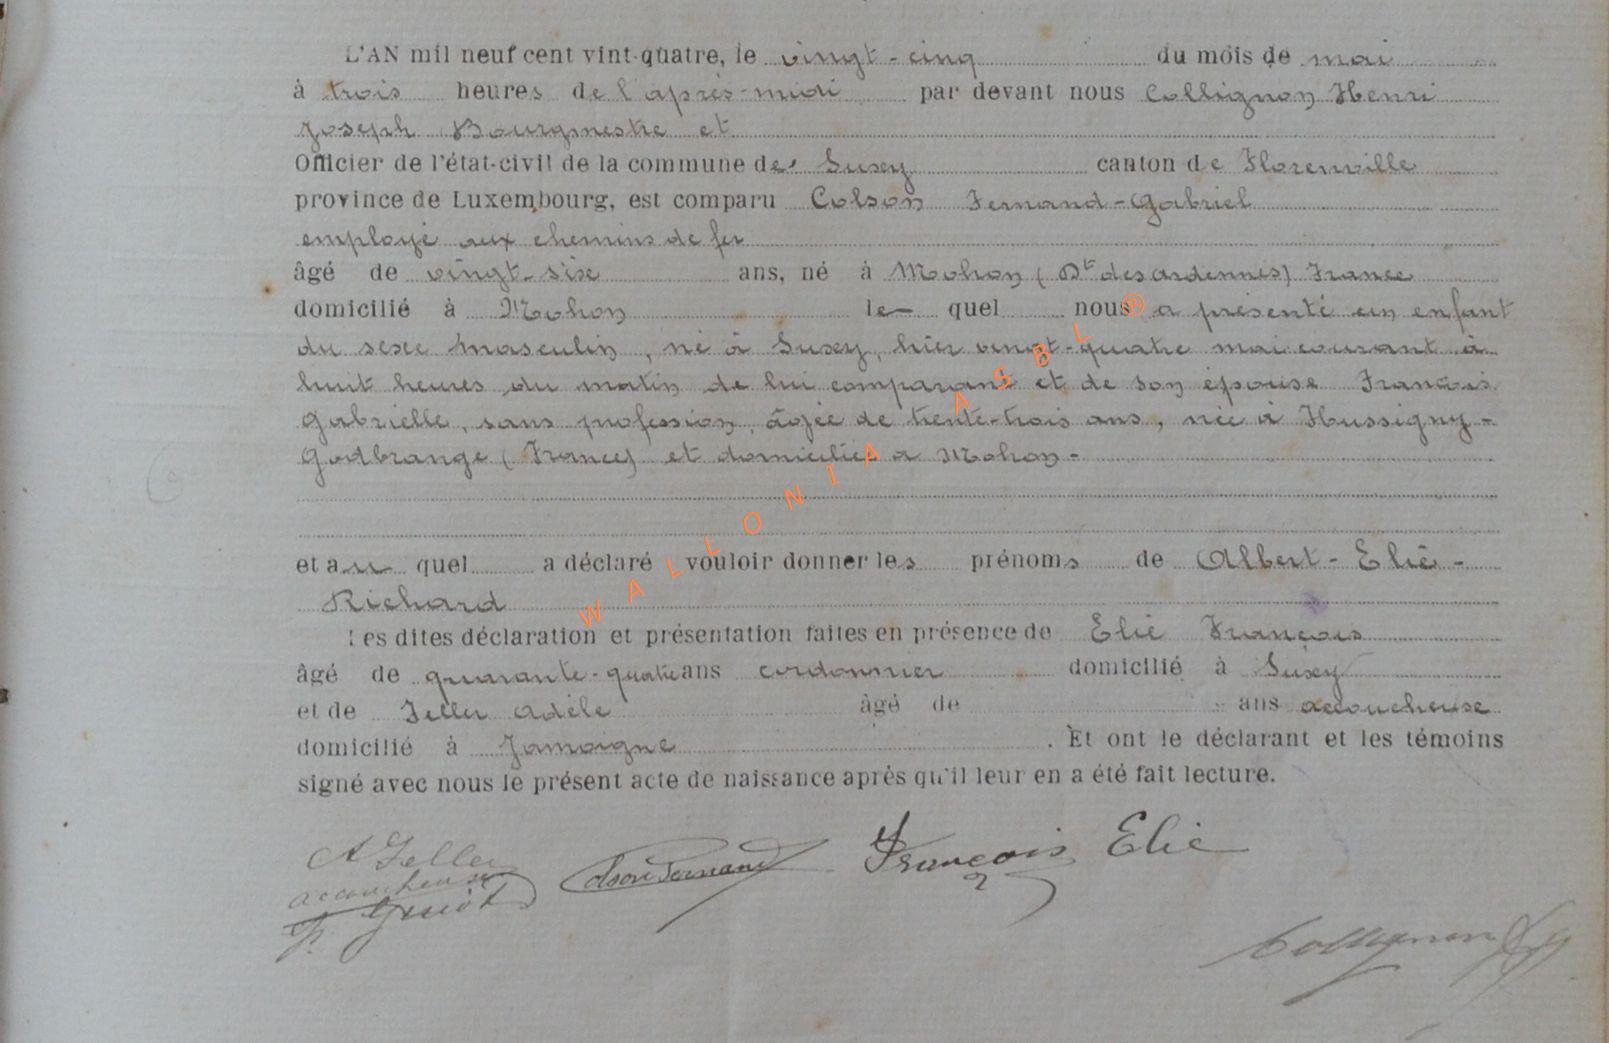 L'AN mil neuf cent vint-quatre, le vingt-cinq du mois de mai
à trois heures de l'après-midi par devant nous Collignon Henri
Joseph Bourgmestre et
Officier de l'état-civil de la commune de Suxy canton de Florenville
province de Luxembourg, est comparu Colson Fernand-Gabriel
employé aux chemins de fer
âgé de vingt-six ans, né à Mohon (Dt des Ardennes) France
domicilié à Mohon le quel nous a présenté un enfant
du sexe masculin, né à Suxy, hier vingt-quatre mai courant à
huit heures du matin de lui comparant et de son épouse François
Gabrielle, sans profession, âgée de trente-trois ans, née à Hussigny-
Godbrange (France) et domiciliée à Mohon -
et au quel a déclaré vouloir donner les prénoms de Albert-Elie-
Richard
Les dites déclaration et présentation faites en présence de Elie François
âgé de quarante-quatre ans cordonnier domicilié à Suxy
et de Feller Adèle âgé de ans accoucheuse
domicilié à Jamoigne. Et ont le déclarant et les témoins
signé avec nous le présent acte de naissance après qu'il leur en a été fait lecture.
A Feller
accoucheuse
Colson Fernand
François Elie
Collignon
WALLONIA ASBL ®